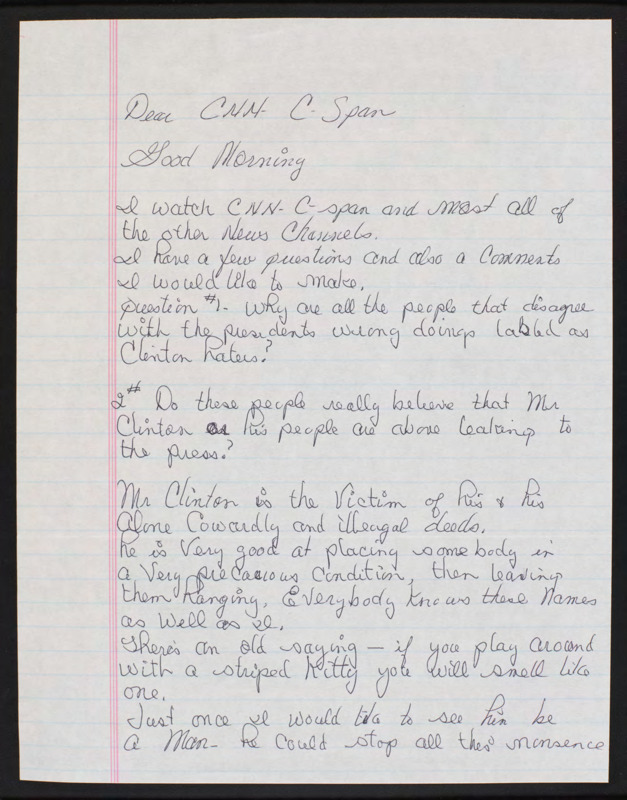 Dear CNN- C-Span
Good Morning
I watch CNN- C-span and most all of
the other News Channels.
I have a few questions and also a Comments
I would like to make.
Question #1- Why are all the people that disagree
with the presidents wrong doings labled as
Clinton haters?
2# Do these people really believe that Mr
Clinton or his people are above leaking to
the press?
Mr Clinton is the Victim of his & his
Alone Cowardly and illeagal deeds.
he is Very good at placing somebody in
a Very precarious Condition, then leaving
them hanging. Everybody knows these Names
as well as I.
There's an old saying — if you play around
with a striped Kitty you will smell like
one.
Just once I would like to see him be
a Man- he Could stop all this nonsence